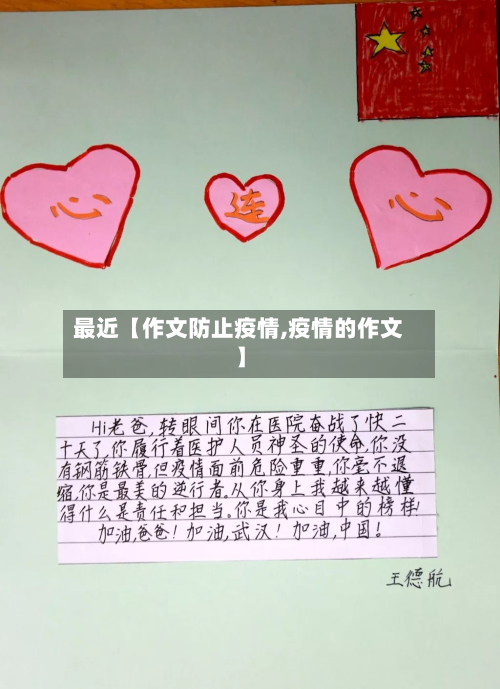 心 连 心
最近【作文防止疫情,疫情的作文
】
Hi老爸,转眼间你在医院奋战了快二
十天了,你履行着医护人员神圣的使命,你没
有钢筋铁骨但疫情面前危险重重,你毫不退
缩,你是最美的逆行者,从你身上我越来越懂
得什么是责任和担当.你是我心目中的榜样!
加油,爸爸!加油,武汉!加油,中国!
王德航